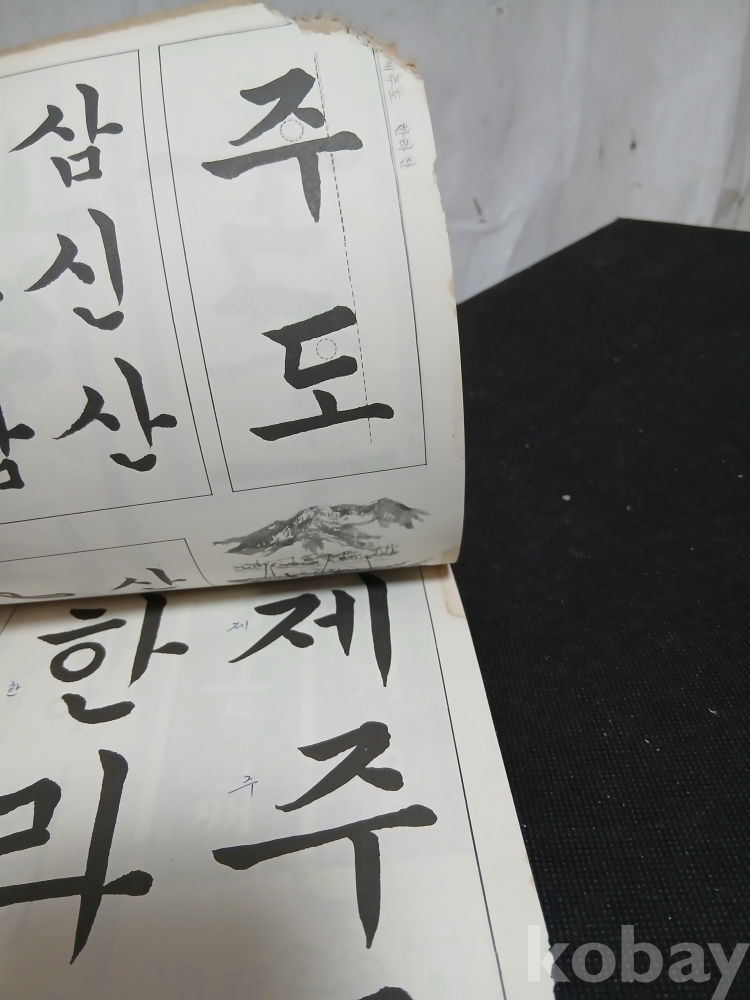 제주도 한라산
주
도
삼
신
산
산
제
주
한
라
제
주
한
kobay